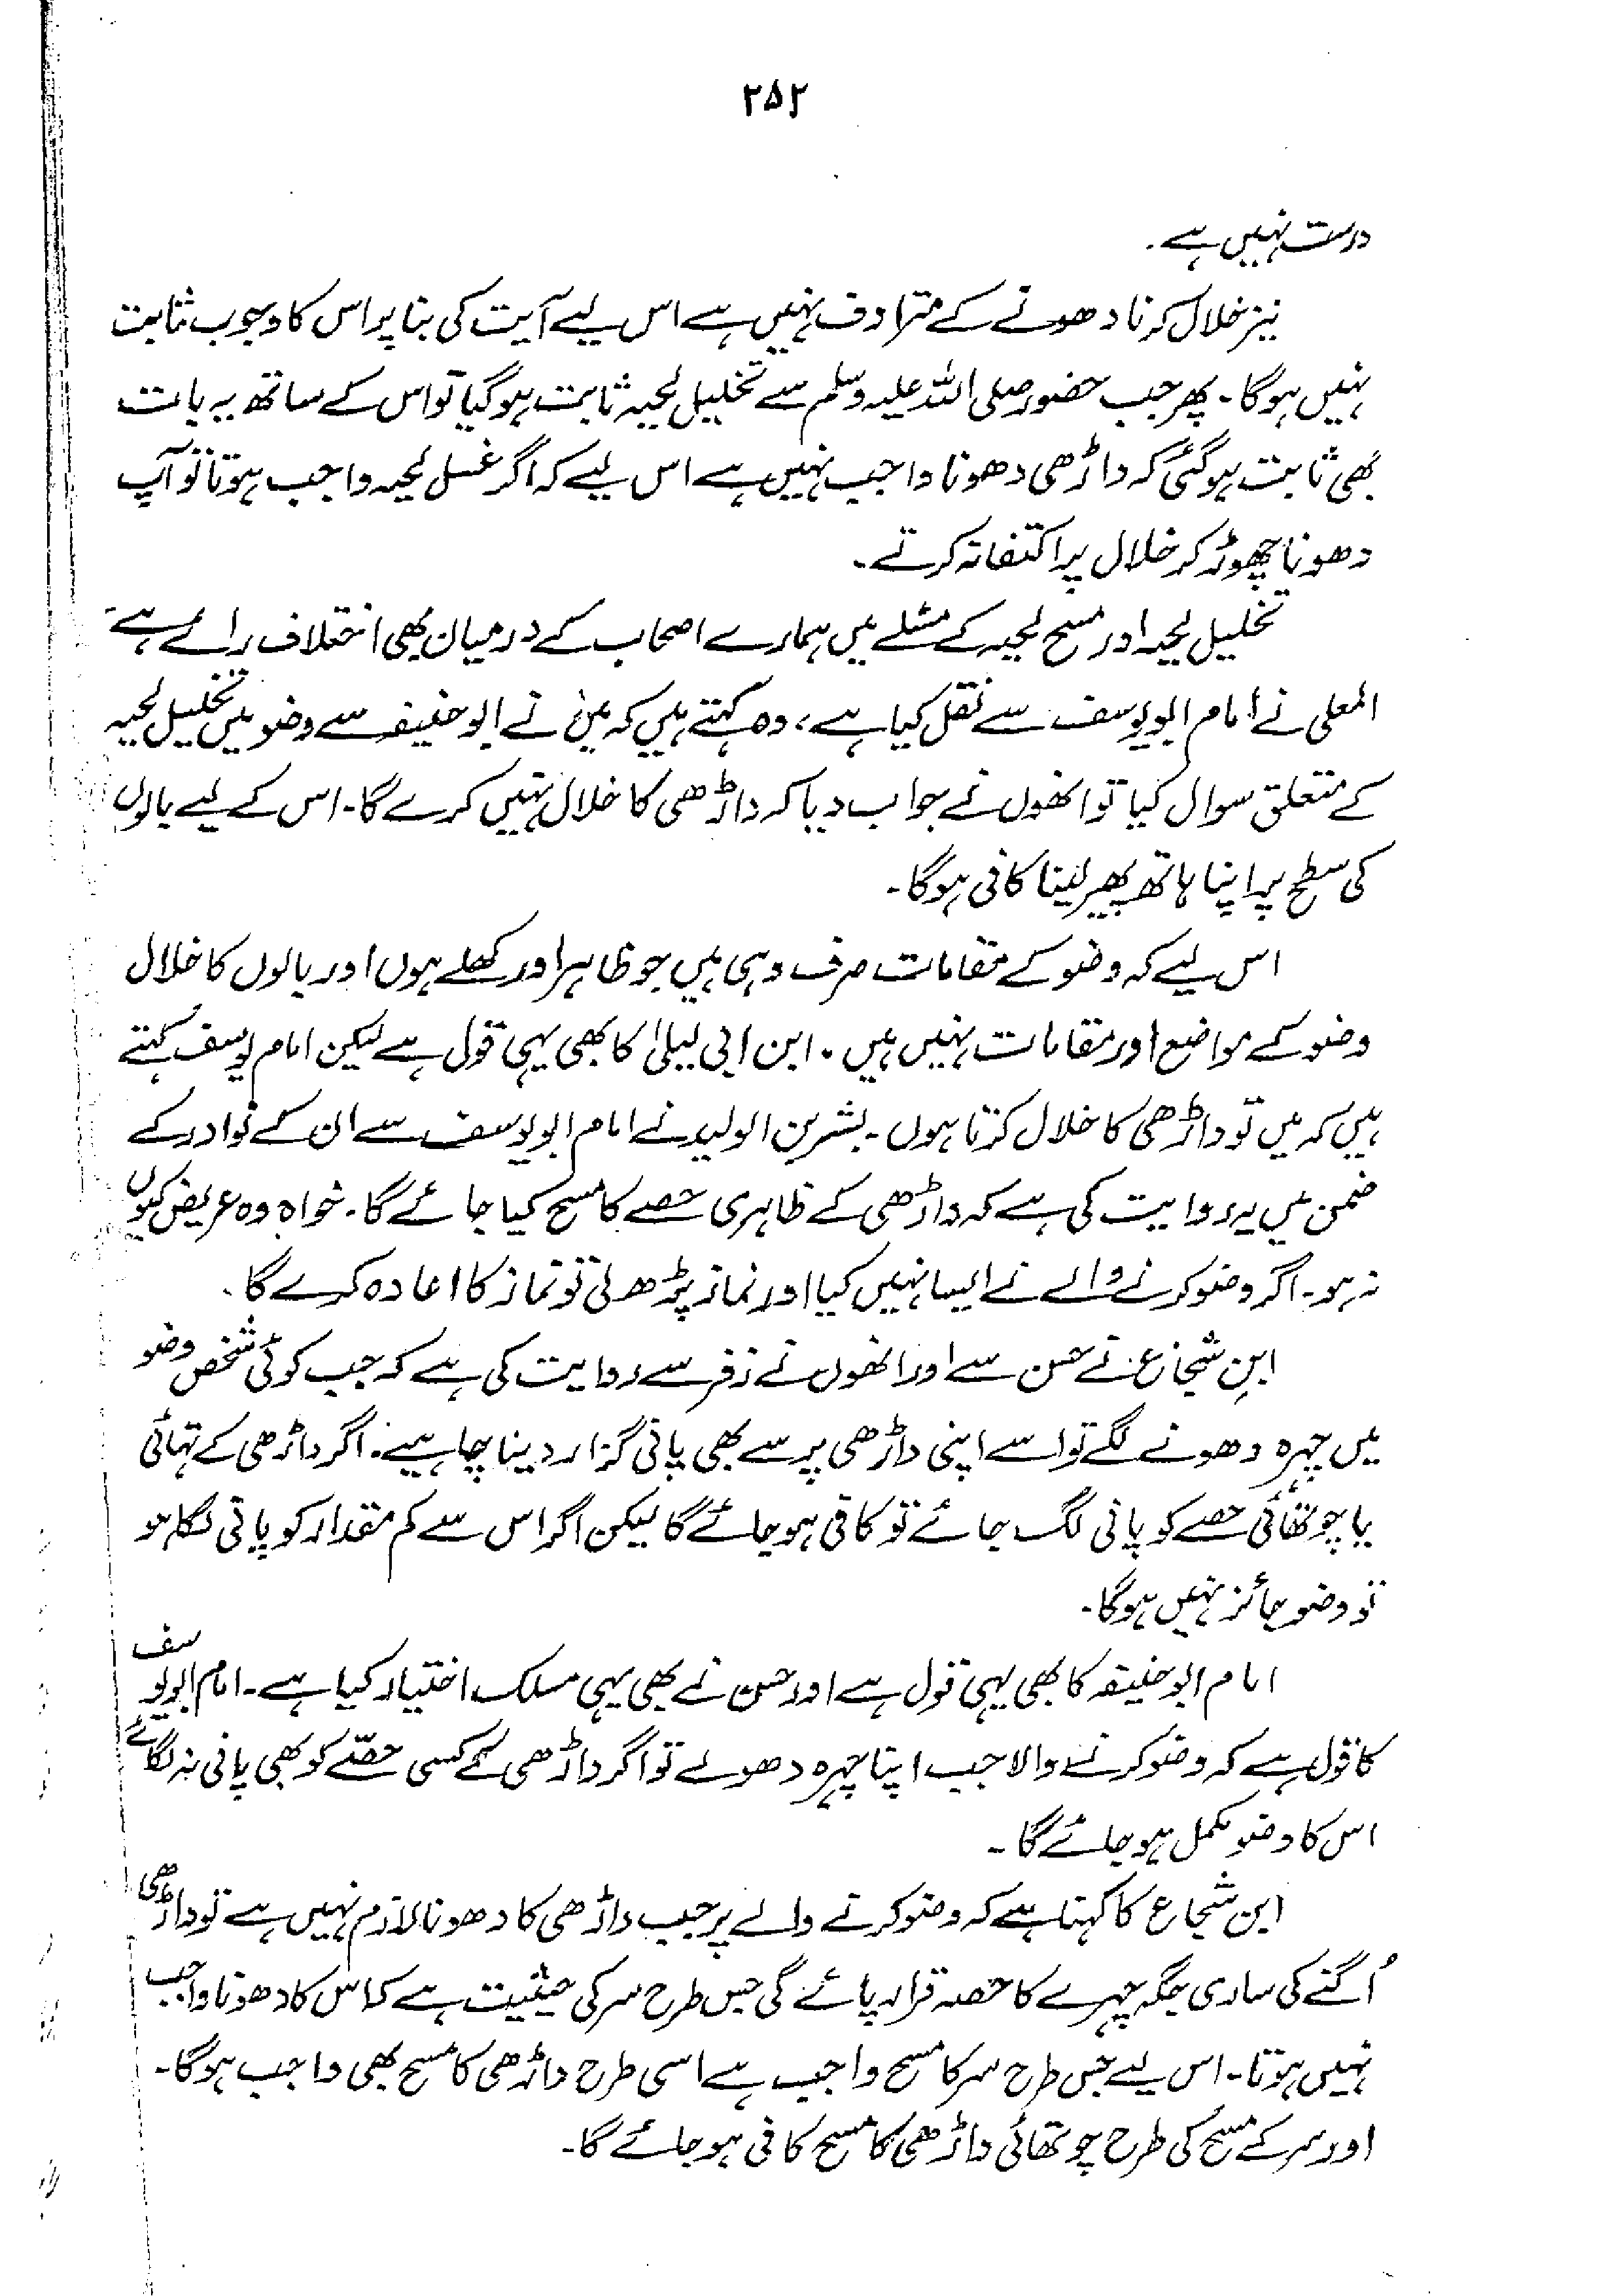 ۲۵۲
درست نہیں ہے۔
نیز خلال کرنا دھونے کے مترادف نہیں ہے اس لیے آیت کی بنا پر اس کا وجوب ثابت
نہیں ہوگا۔ پھر جب حضور صلی اللہ علیہ وسلم سے تخلیل لحیہ ثابت ہوگیا تو اس کے ساتھ یہ بات
بھی ثابت ہوگئی کہ داڑھی دھونا واجب نہیں ہے اس لیے کہ اگر غسل لحیہ واجب ہوتا تو آپ
دھونا چھوڑ کر خلال پر اکتفا نہ کرتے۔
تخلیل لحیہ اور مسح لحیہ کے مسئلے میں ہمارے اصحاب کے درمیان بھی اختلاف رائے ہے
المعلی نے امام ابویوسف سے نقل کیا ہے، وہ کہتے ہیں کہ میں نے ابوحنیفہ سے وضو میں تخلیل لحیہ
کے متعلق سوال کیا تو انھوں نے جواب دیا کہ داڑھی کا خلال نہیں کرے گا۔ اس کے لیے بالوں
کی سطح پر اپنا ہاتھ پھیر لینا کافی ہوگا۔
اس لیے کہ وضو کے مقامات صرف وہی ہیں جو ظاہر اور کھلے ہوں اور بالوں کا خلال
وضو کے مواضع اور مقامات نہیں ہیں۔ ابن ابی لیلیٰ کا بھی یہی قول ہے لیکن امام یوسف کہتے
ہیں کہ میں تو داڑھی کا خلال کرتا ہوں۔ بشر بن الولید نے امام ابویوسف سے ان کے نوادر کے
ضمن میں یہ روایت کی ہے کہ داڑھی کے ظاہری حصے کا مسح کیا جائے گا۔ خواہ وہ عریض کیوں
نہ ہو۔ اگر وضو کرنے والے نے ایسا نہیں کیا اور نماز پڑھ لی تو نماز کا اعادہ کرے گا۔
ابن شجاع نے حسن سے اور انھوں نے زفر سے روایت کی ہے کہ جب کوئی شخص وضو
میں چہرہ دھونے لگے تو اسے اپنی داڑھی پر سے بھی پانی گزار دینا چاہیے۔ اگر داڑھی کے تہائی
یا چوتھائی حصے کو پانی لگ جائے تو کافی ہوجائے گا لیکن اگر اس سے کم مقدار کو پانی لگا ہو
تو وضو جائز نہیں ہوگا۔
امام ابوحنیفہ کا بھی یہی قول ہے اور حسن نے بھی یہی مسلک اختیار کیا ہے۔ امام ابویوسف
کا قول ہے کہ وضو کرنے والا جب اپنا چہرہ دھولے تو اگر داڑھی کے کسی حصّے کو بھی پانی نہ لگائے
اس کا وضو مکمل ہوجائے گا۔
ابن شجاع کا کہنا ہے کہ وضو کرنے والے پر جب داڑھی کا دھونا لازم نہیں ہے تو داڑھی
اُگنے کی ساری جگہ چہرے کا حصہ قرار پائے گی جس طرح سر کی حیثیت ہے کہ اس کا دھونا واجب
نہیں ہوتا۔ اس لیے جس طرح سر کا مسح واجب ہے اسی طرح داڑھی کا مسح بھی واجب ہوگا۔
اور سر کے مسح کی طرح چوتھائی داڑھی کا مسح کافی ہوجائے گا۔